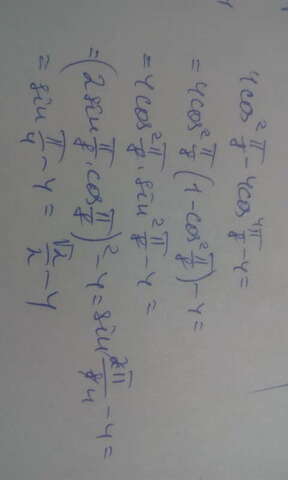 4cos²π/8 - 4cos⁴π/8 - 4 =
= 4cos²π/8 (1 - cos²π/8) - 4 =
= 4cos²π/8 · sin²π/8 - 4 =
= (2sinπ/8 · cosπ/8)² - 4 = sin2π/84 - 4 =
= sinπ/4 - 4 = √2/2 - 4